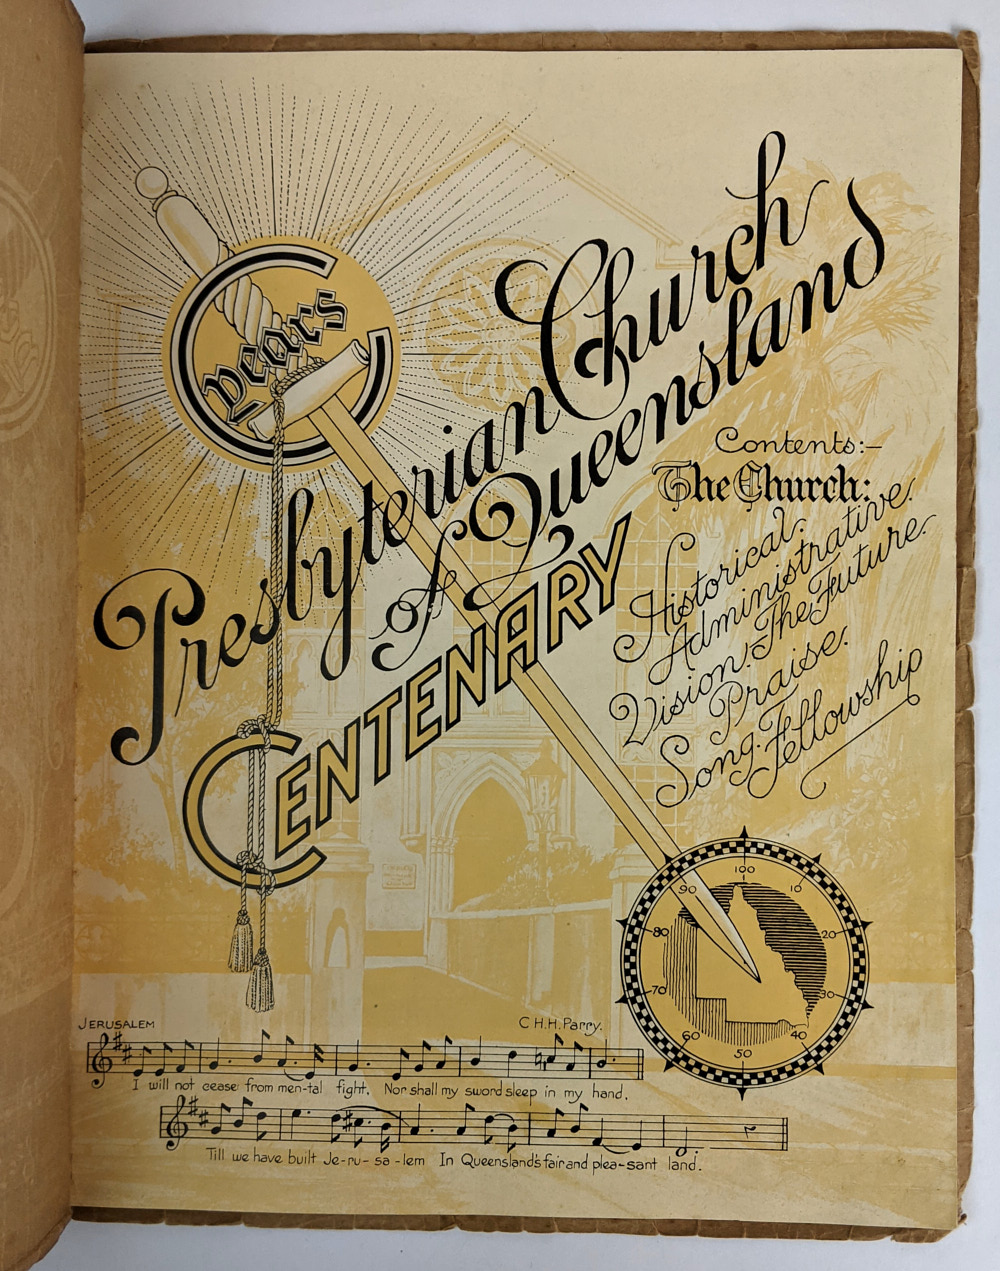 C
years
Presbyterian Church
of Queensland
CENTENARY
Contents:-
The Church:
Historical.
Administrative.
Vision: The Future.
Praise.
Song. Fellowship
100
10
20
30
40
50
60
70
80
90
JERUSALEM
C.H.H. Parry.
I will not cease from men-tal fight. Nor shall my sword sleep in my hand,
Till we have built Je-ru-sa-lem In Queensland's fair and plea-sant land.